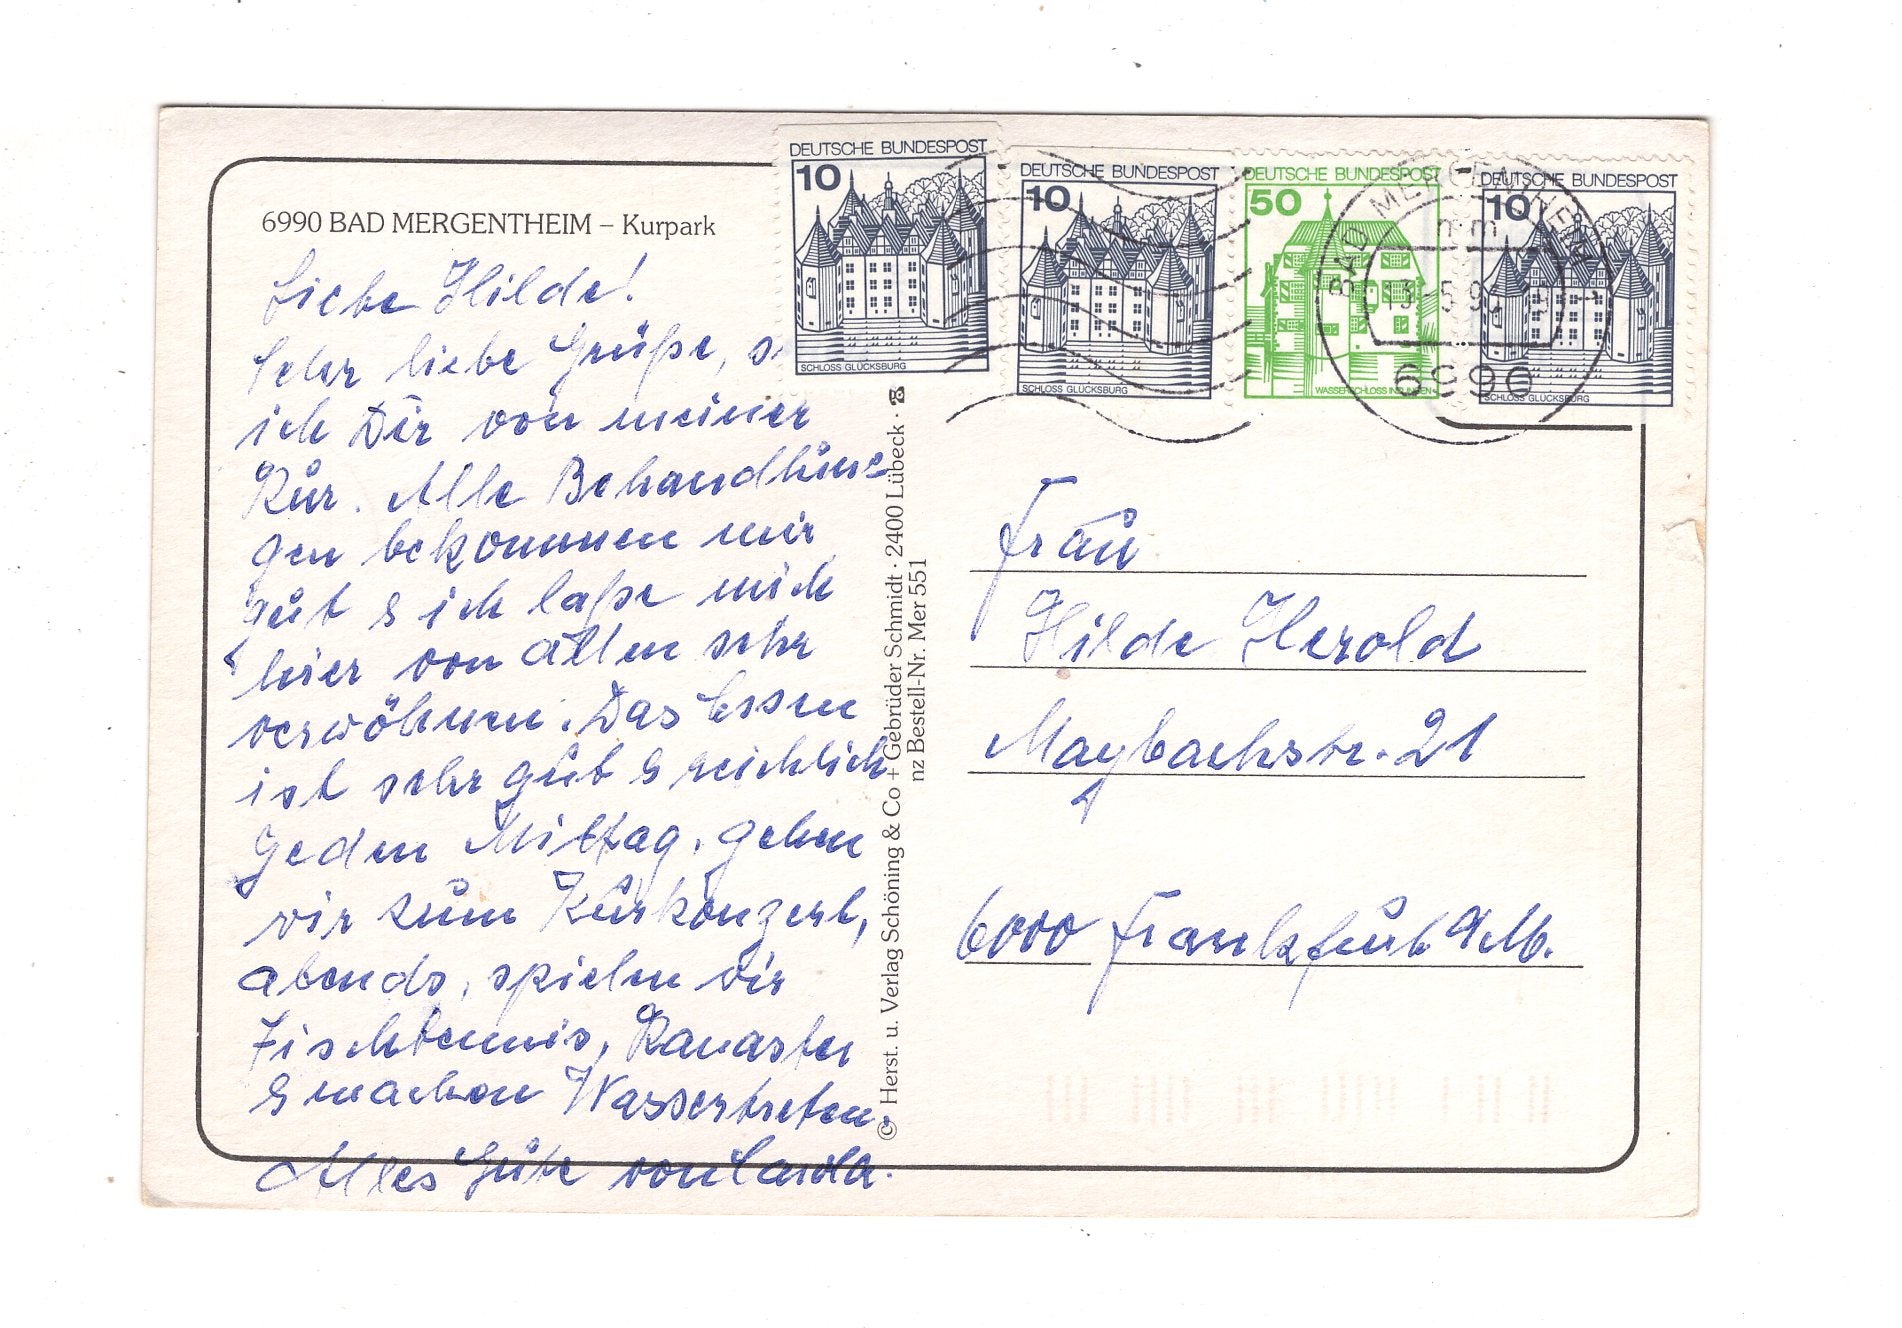 6990 BAD MERGENTHEIM – Kurpark
Liebe Hilde!
Sehr liebe Grüße, s
ich Dir von meiner
Kur. Alle Behandlun=
gen bekommen mir
gut & ich laße mich
hier von allen sehr
verwöhnen. Das Essen
ist sehr gut & reichlich
Jeden Mittag, gehen
wir zum Kurkonzert,
abends, spielen wir
Tischtennis, Kanaster
& machen Wassertreten.
Alles Gute von
© Herst. u. Verlag Schöning & Co + Gebrüder Schmidt · 2400 Lübeck ·
nz Bestell-Nr. Mer 551
DEUTSCHE BUNDESPOST
10
SCHLOSS GLÜCKSBURG
DEUTSCHE BUNDESPOST
10
SCHLOSS GLÜCKSBURG
DEUTSCHE BUNDESPOST
50
WASSERSCHLOSS INZLINGEN
DEUTSCHE BUNDESPOST
10
SCHLOSS GLÜCKSBURG
BAD MERGENTHEIM 1
mm
6990
Frau
Hilde Herold
Maybachstr. 21
6000 Frankfurt a/M.